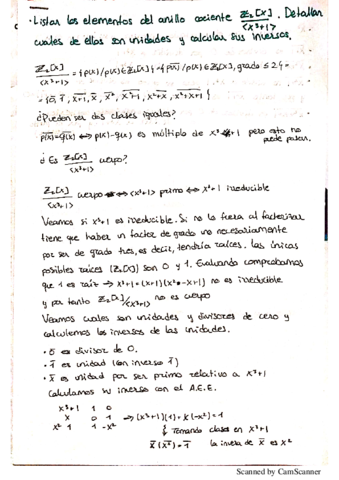 · Listar los elementos del anillo cociente Z₂[x]/<x³+1>. Detallar
cuales de ellos son unidades y calcular sus inversos.
Z₂[x]/<x³+1> = {p(x)/p(x)∈Z₂[x]} = {p(x)/p(x)∈Z₂[x], grado ≤ 2} =
= {0, 1, x+1, x, x², x²+1, x²+x, x²+x+1}
¿Pueden ser dos clases iguales?
p(x)=q(x) ⟺ p(x)-q(x) es múltiplo de x³+1 pero esto no
puede pasar.
¿Es Z₂[x]/<x³+1> cuerpo?
Z₂[x]/<x³+1> cuerpo ⟺ <x³+1> primo ⟺ x³+1 irreducible
Veamos si x³+1 es irreducible. Si no lo fuera al factorizar
tiene que haber un factor de grado uno necesariamente
por ser de grado tres, es decir, tendría raíces. Las únicas
posibles raíces (Z₂[x]) son 0 y 1. Evaluando comprobamos
que 1 es raíz → x³+1 = (x+1)(x²-x+1) no es irreducible
y por tanto Z₂[x]/<x³+1> no es cuerpo
Veamos cuales son unidades y divisores de cero y
calculemos los inversos de las unidades.
· 0 es divisor de 0.
· 1 es unidad (con inverso 1)
· x es unidad por ser primo relativo a x³+1
Calculamos su inverso con el A.E.E.
x³+1 1 0
x 0 1 → (x³+1)(1)+x(-x²)=1
x² 1 1 -x² Tomando clases en x³+1
x(x²)=1 la inversa de x es x²
Scanned by CamScanner